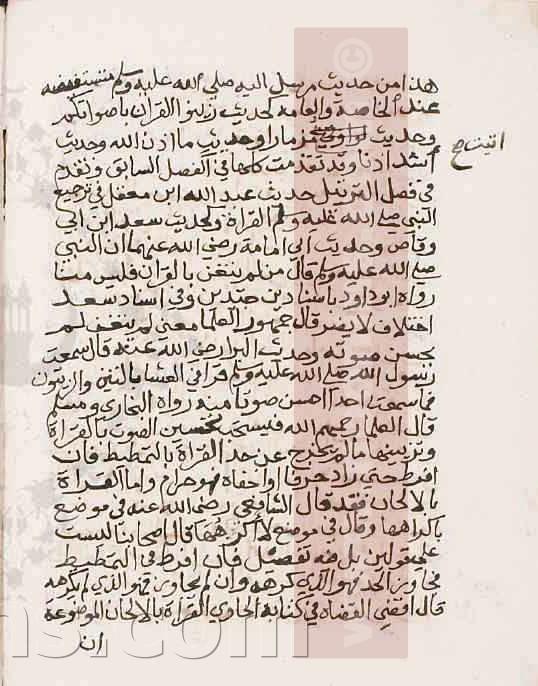 هذا من حديث مرسل اليه صلي الله عليه وسلم مستفيضه
عند الخاصة والعامه كحديث زينو القرآن باصواتكم
وحديث لقد اوتي مزمارا وحديث ما اذن الله وحديث
اتيت ح
اشد اذنا وقد تقدمت كلها في الفصل السابق وتقدم
في فصل الترتيل حديث عبد الله ابن معقل في ترجيع
النبي صلي الله عليه وسلم القراة ولحديث سعد ابن ابي
وقاص وحديث ابي امامة رضي الله عنهما ان النبي
صلي الله عليه وسلم قال من لم يتغن بالقرآن فليس منا
رواه ابو داود باسنادين جيدين وفي اسناد سعد
اختلاف لا يضر قال جمهور العلما معنى لم يتغن لم
يحسن صوته وحديث البرا رضي الله عنه قال سمعت
رسول الله صلي الله عليه وسلم قرا في العشا بالتين والزيتون
فما سمعت احدا احسن صوتا منه رواه البخاري ومسلم
قال العلما رحمهم الله فيستحب تحسين الصوت بالقراة
وتزيينها ما لم يخرج عن حد القراة بالتمطيط فان
افرط حتى زاد حرفا او اخفاه فهو حرام واما القراة
بالالحان فقد قال الشافعي رضي الله عنه في موضع
باكراهها وقال في موضع لا اكرهها قال اصحابنا ليست
على قولين بل فيه تفصيل فان افرط في التمطيط
فجاوز الحد فهو الذي كرهه وان لم يجاوز فهو الذي لم يكرهه
قال اقضى القضاه في كتابه الحاوي القراة بالالحان الموضوعة
ان